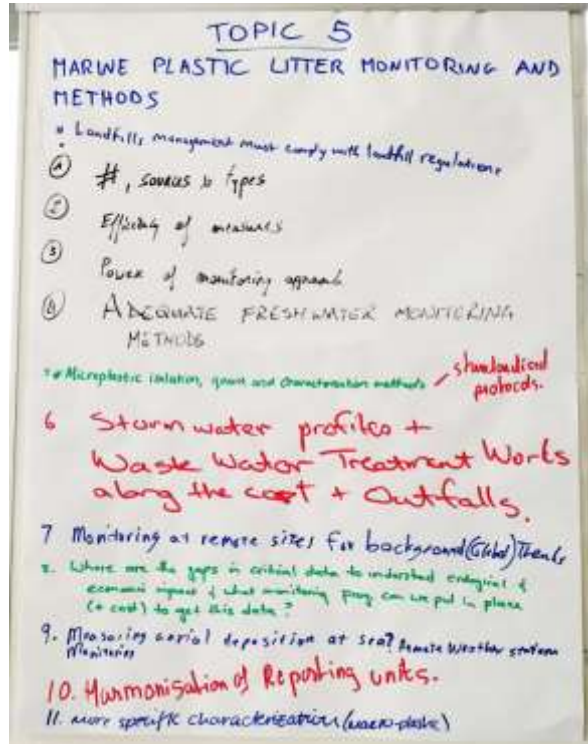 TOPIC 5
MARINE PLASTIC LITTER MONITORING AND
METHODS
* Landfills management must comply with landfill regulations
① #, sources & types
② Efficacy of measures
③ Power of monitoring approach
④ ADEQUATE FRESHWATER MONITORING
METHODS
5 # Microplastic isolation, quant and characterisation methods / standardised
protocols.
6 Storm water profiles +
Waste Water Treatment Works
along the cost + Outfalls.
7 Monitoring at remote sites for background (Global) Trends
8. Where are the gaps in critical data to understand ecological &
economic impact & what monitoring prog can we put in place
(+ cost) to get this data?
9. Measuring aerial deposition at sea? Remote Weather station
Monitoring
10. Harmonisation of Reporting units.
11. more specific characterization (macro-plastic)